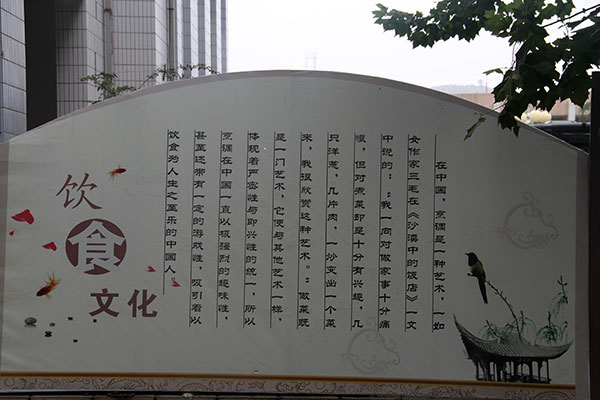 饮食文化
在中国，烹调是一种艺术，一如
女作家三毛在《沙漠中的饭店》一文
中说的：“我一向对做家事十分痛
恨，但对煮菜却是十分有兴趣，几
只洋葱，几片肉，一炒变出一个菜
来，我很欣赏这种艺术。”做菜既
是一门艺术，它便与其他艺术一样，
体现着严密性与即兴性的统一，所以
烹调在中国一直以极强烈的趣味性，
甚至还带有一定的游戏性，吸引着以
饮食为人生之至乐的中国人。